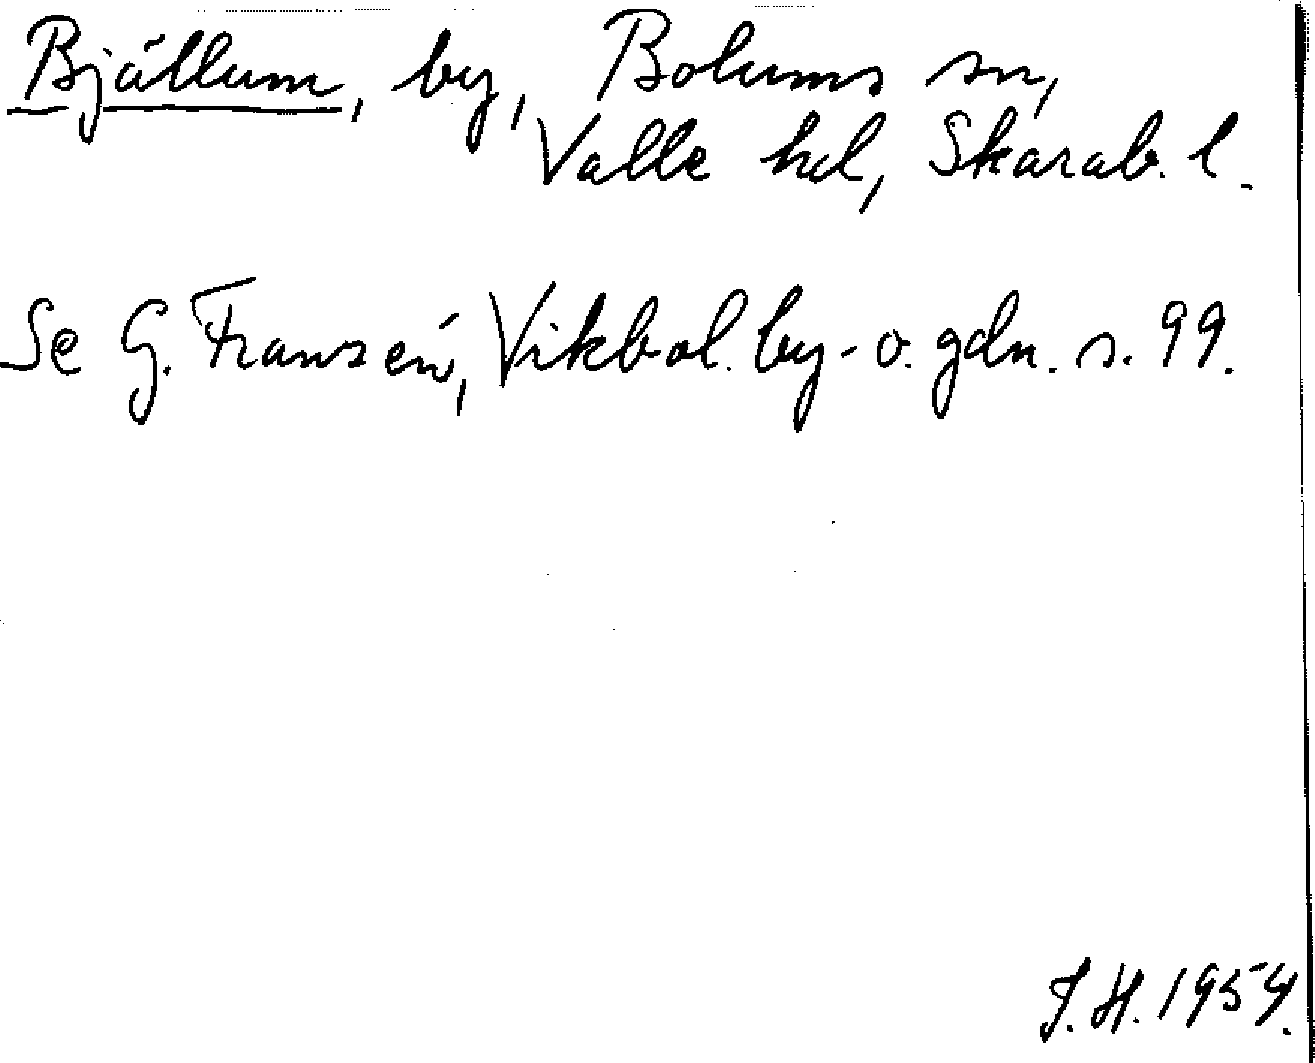 Bjällum, by, Bolums sn,
Valle hd, Skarab. l.
Se G. Franzén, Vikbol. by- o. gdn. s. 99.
J. H. 1954.